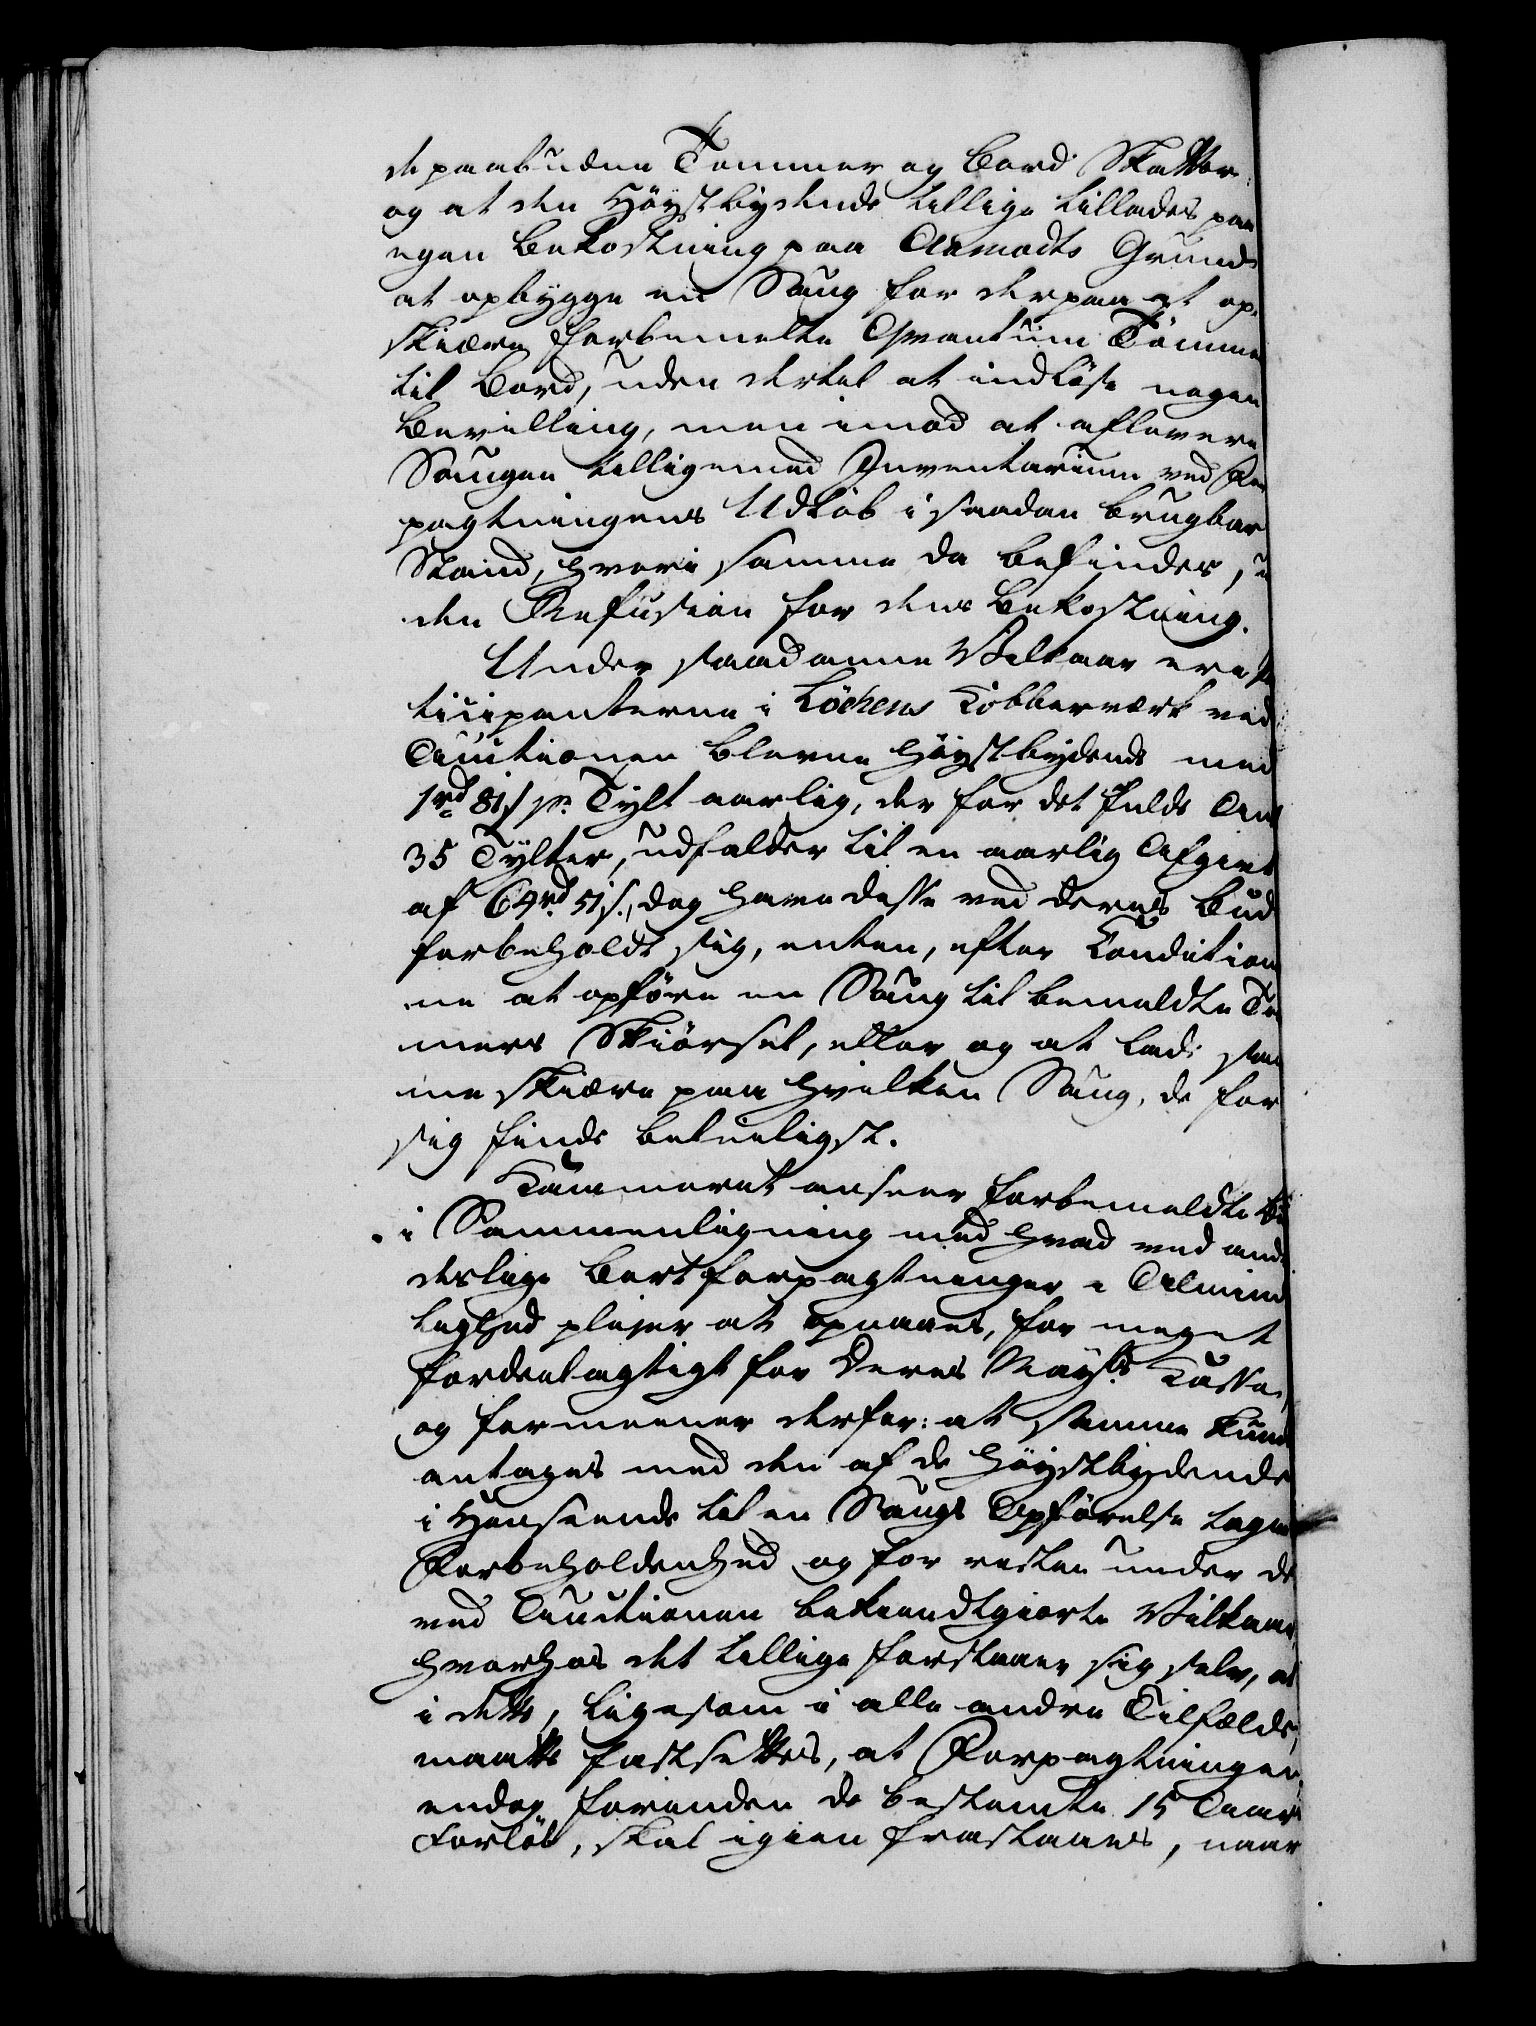 de paabudne Tømmer og Bord Skatter:
og at den Høystbydende tillige tillades paa
egen Bekostning paa Aamodts Grund
at opbygge en Saug for derpaa at op-
skiære forbemelte Qvantum Tømmer
til Bord, uden dertil at indløse nogen
Bevilling, men imod at aflevere
Saugen tilligemed Inventarium ved For
pagtningens Udløb i saadan brugbar
Stand, hvori samme da befindes, u
den Refusion for dens Bekostning.
Under saadanne Vilkaar ere
ticipanterne i Løckens Kobberværk ved
Auctionen blevne høystbydende med
1 rd 81 s pr. Tylt aarlig, der for det fulde An
35 Tylter, udfalder til en aarlig Afgivt
af 64 rd 51 s., dog have disse ved deres Bud
forbeholdt sig, enten, efter Condition
ne at opføre en Saug til bemeldte Tø
mers Skiørsel, eller og at lade sam
me skiære paa hvilken Saug, de for
sig finde beleiligst.
Kammeret anseer forbemeldte Bu
i Sammenligning med hvad ved and
deslige Bortforpagtninger i Almind
lighed plejer at opnaaes, for meget
fordeelagtigt for Deres Mayts Kasse,
og formeener derfor: at samme kunde
antages med den af de høystbydende
i Henseende til en Saugs Opførelse tagne
Forbeholdenhed og for resten under de
ved Auctionen bekiendtgiorte Vilkaar,
hvorhos det tillige forstaaer sig selv, at
i dette, ligesom i alle andre Tilfælde,
maatte fastsettes, at Forpagtningen,
endog forinden de bestemte 15 Aars
Forløb, skal igien fratraaes, naar